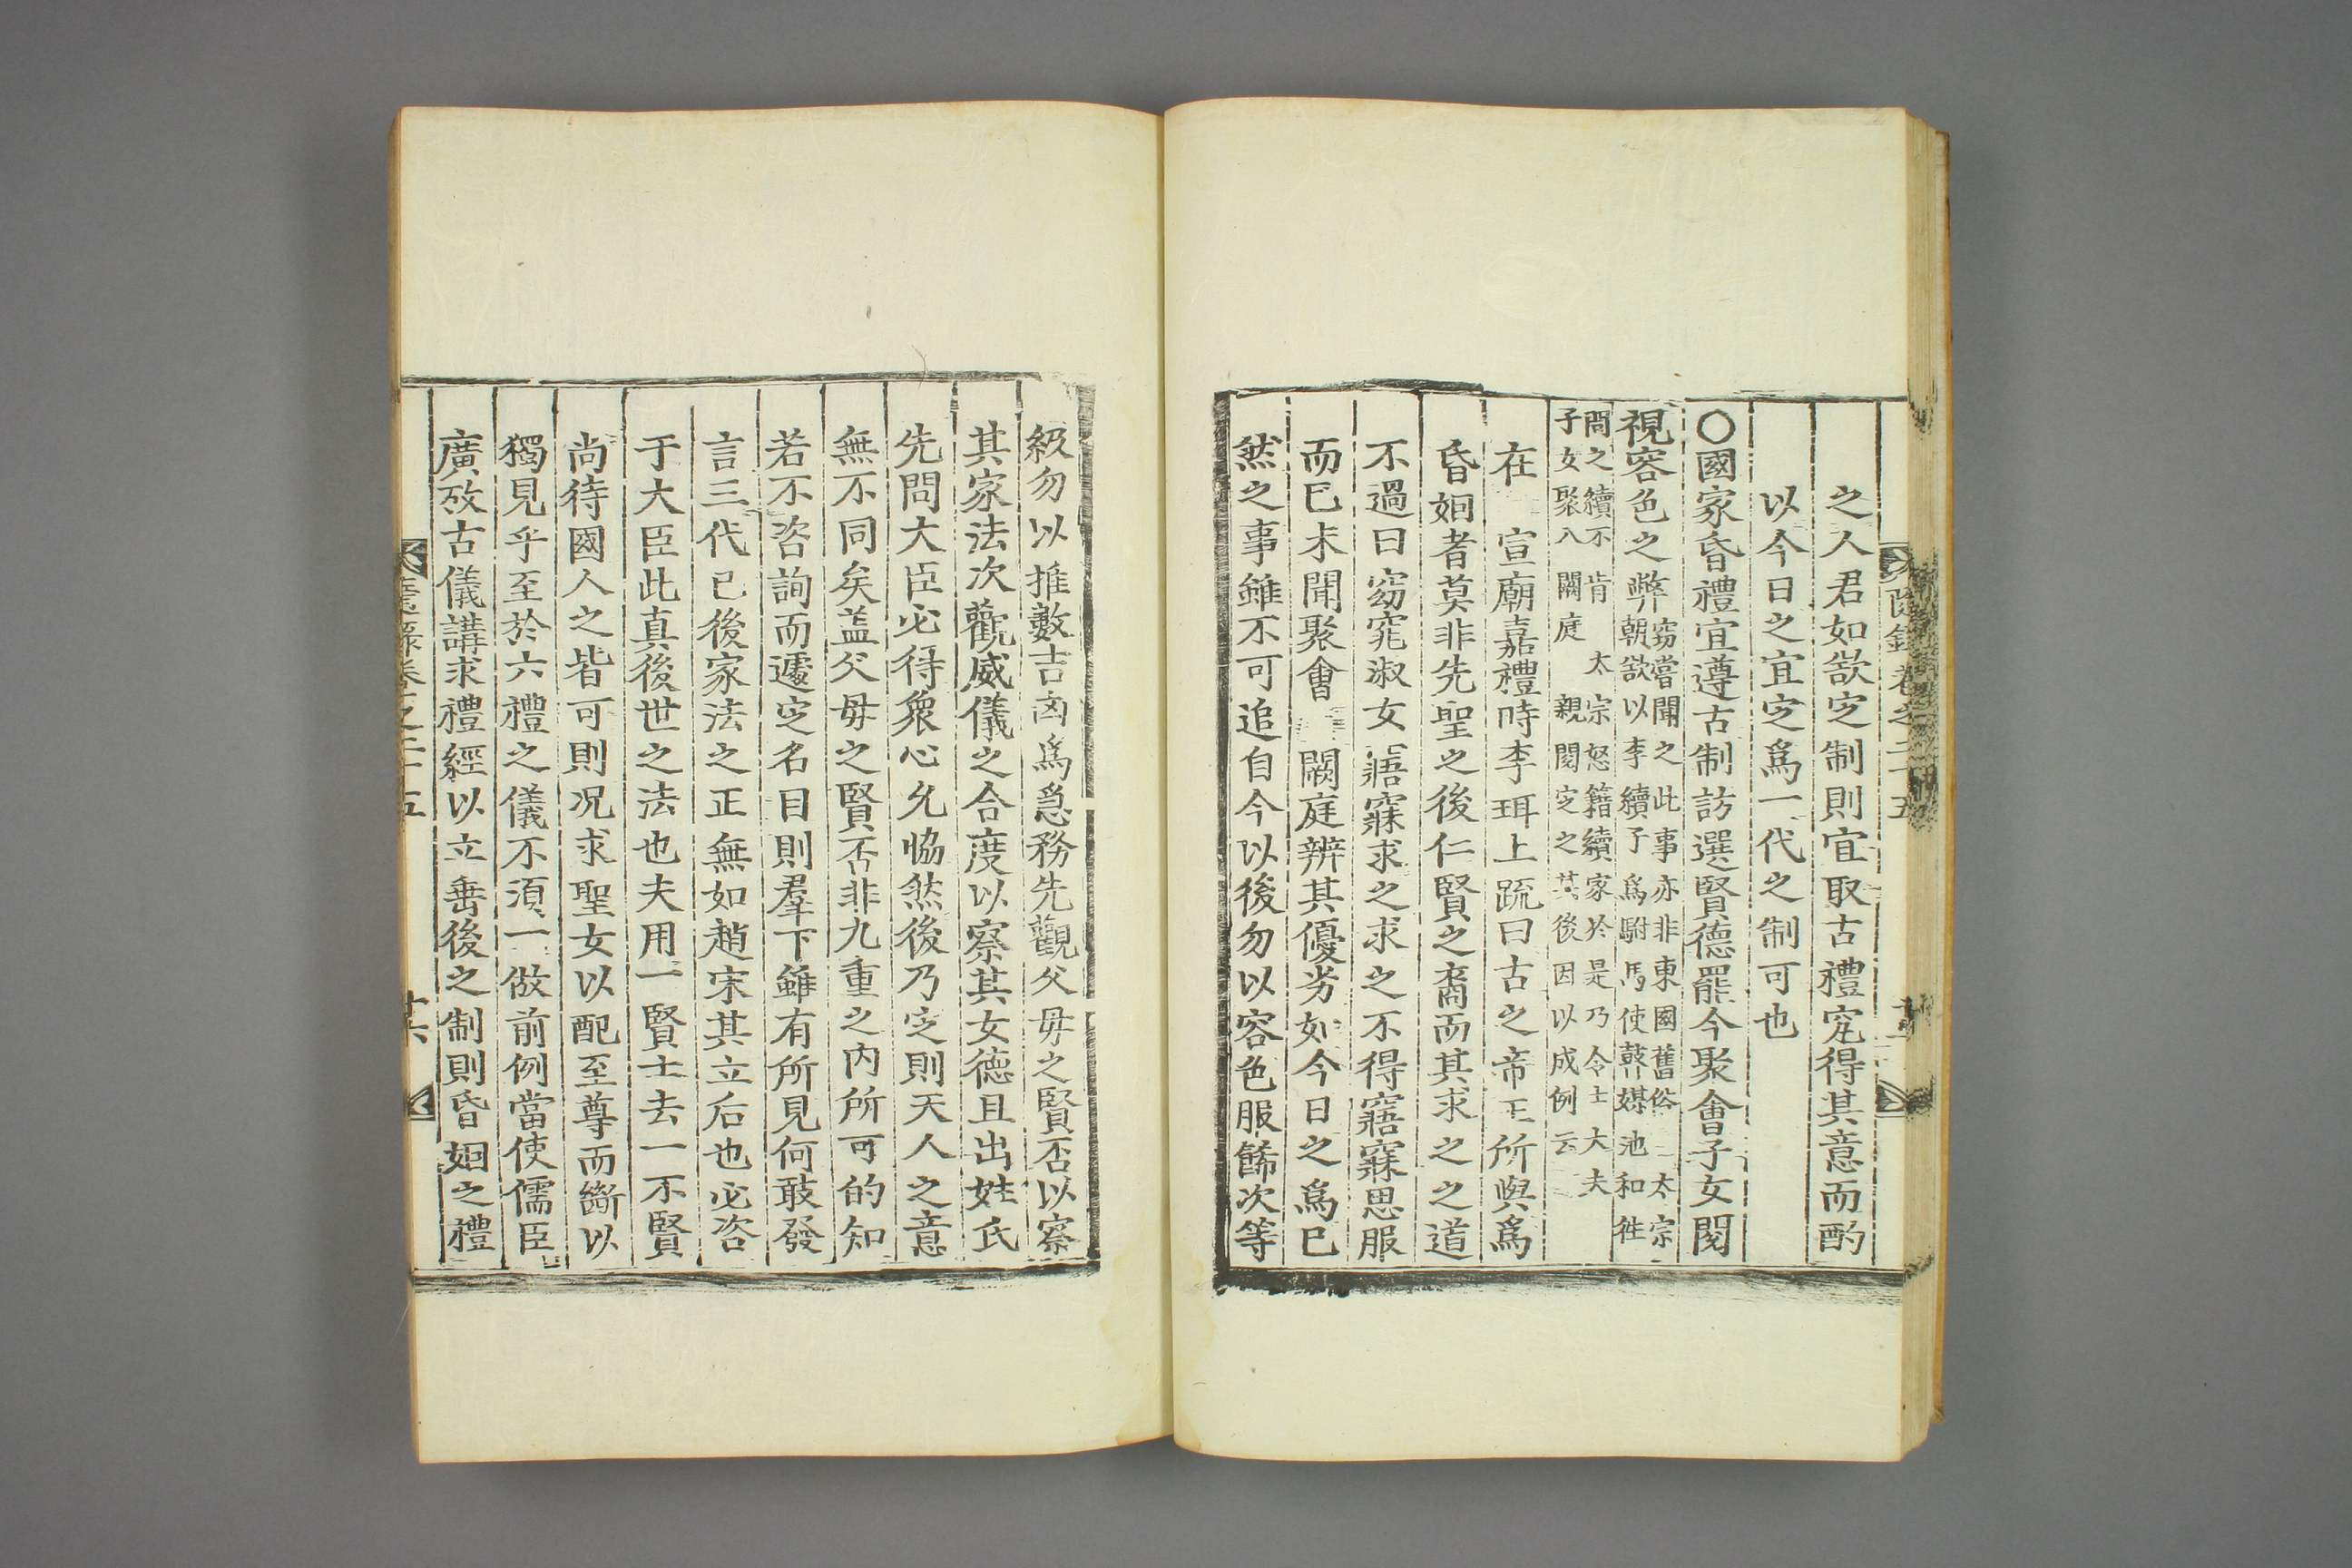 之人君如欲定制則宜取古禮究得其意而酌
以今日之宜定爲一代之制可也
○國家昏禮宜遵古制訪選賢德罷今聚會子女閱
視容色之弊竊嘗聞之此事亦非東國舊俗太宗
朝欲以李續子爲駙馬使瞽媒池和徃
問之續不肯太宗怒籍續家於是乃令士大夫
子女聚入闕庭親閱定之其後因以成例云
在宣廟嘉禮時李珥上疏曰古之帝王所與爲
昏姻者莫非先聖之後仁賢之裔而其求之之道
不過曰窈窕淑女寤寐求之求之不得寤寐思服
而已未聞聚會闕庭辨其優劣如今日之爲已
然之事雖不可追自今以後勿以容色服飾次等
級勿以推數吉凶爲急務先觀父母之賢否以察
其家法次觀威儀之合度以察其女德且出姓氏
先問大臣必得衆心允恊然後乃定則天人之意
無不同矣盖父母之賢否非九重之內所可的知
若不咨詢而遽定名目則羣下雖有所見何敢發
言三代已後家法之正無如趙宋其立后也必咨
于大臣此真後世之法也夫用一賢士去一不賢
尚待國人之皆可則况求聖女以配至尊而斷以
獨見乎至於六禮之儀不須一倣前例當使儒臣
廣攷古儀講求禮經以立垂後之制則昏姻之禮